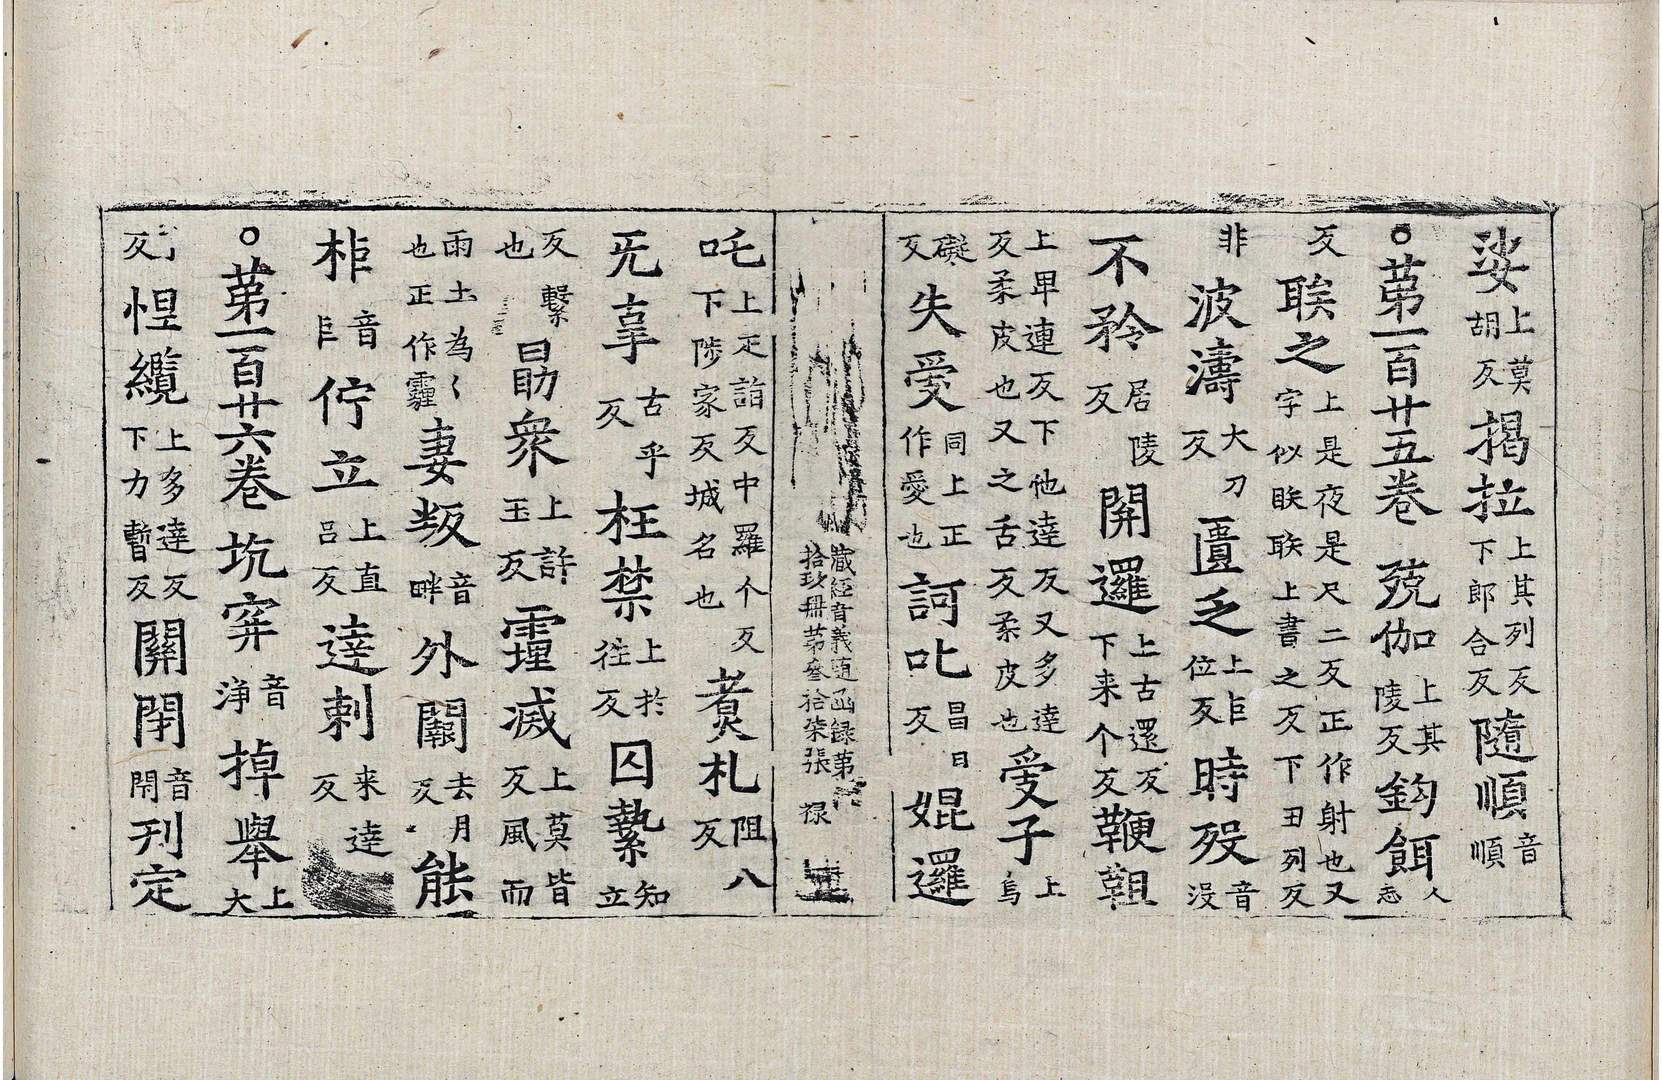 娑上莫胡反揭拉上其列反下郎合反隨順音順
○苐一百廿五卷 殑伽上其陵反鈎餌人志
反䀹之上是夜是尺二反正作射也又字似䀹䀹上書之反下丑列反
非波濤大刀反匱乏上臣位反時歿音没
不矜居陵反開邏上古還反下来个反鞭靼
上卑連反下他達反又多達反柔皮也又之舌反柔皮也受子上烏
礙反失愛同上正作愛也訶叱昌日反婫邏
藏經音義随函録第六
拾玖冊苐叄拾柒張 禄
吒上疋詣反中羅个反下陟家反城名也煑札阻八反
旡辜古乎反枉禁上於往反囚縶知立
反繫也勗衆上許玉反霾滅上莫皆反風而
雨土為〻也正作霾妻叛音畔外闚去月反能
柞音巨佇立上直吕反達剌来達反
○苐一百廿六卷坑穽音浄掉舉上大
了反怛纜上多達反下力暫反關閇音閇刊定